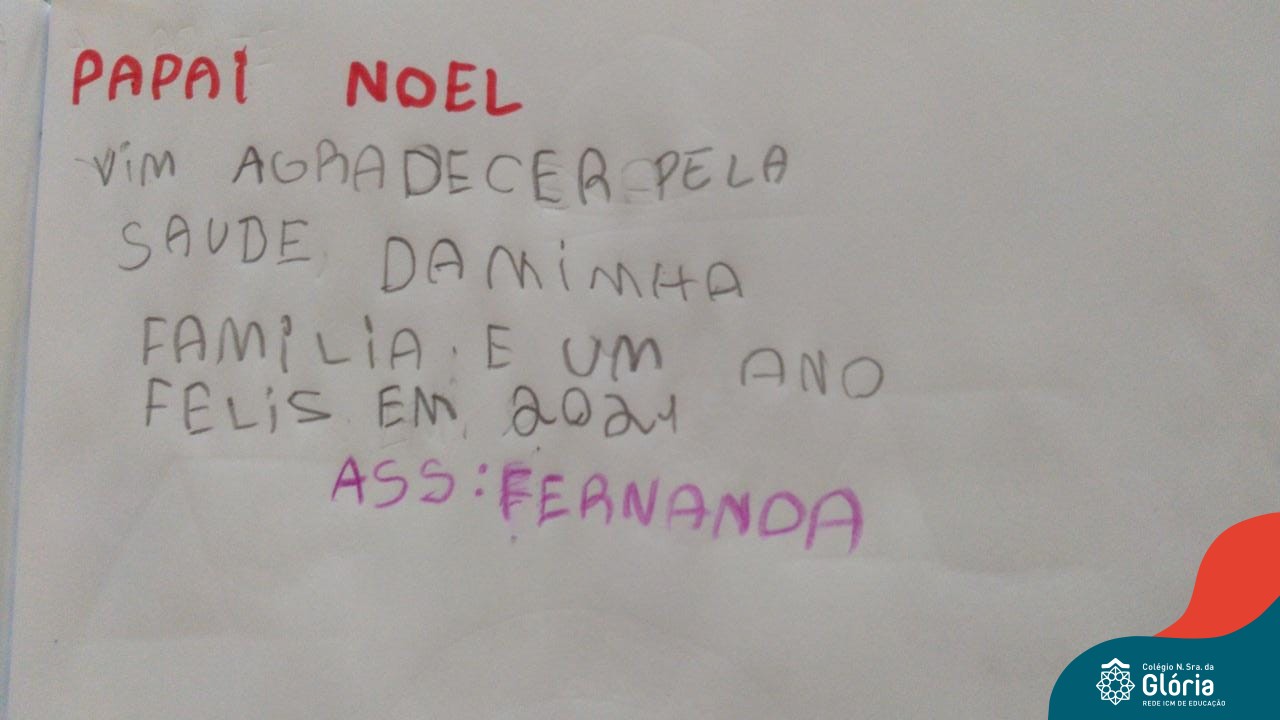 PAPAI NOEL
ViM AGRADECER PELA
SAUDE DA MiMHA
FAMiLiA. E UM ANO
FELiS EM 2021
ASS: FERNANDA
Colégio N. Sra. da
Glória
REDE ICM DE EDUCAÇÃO